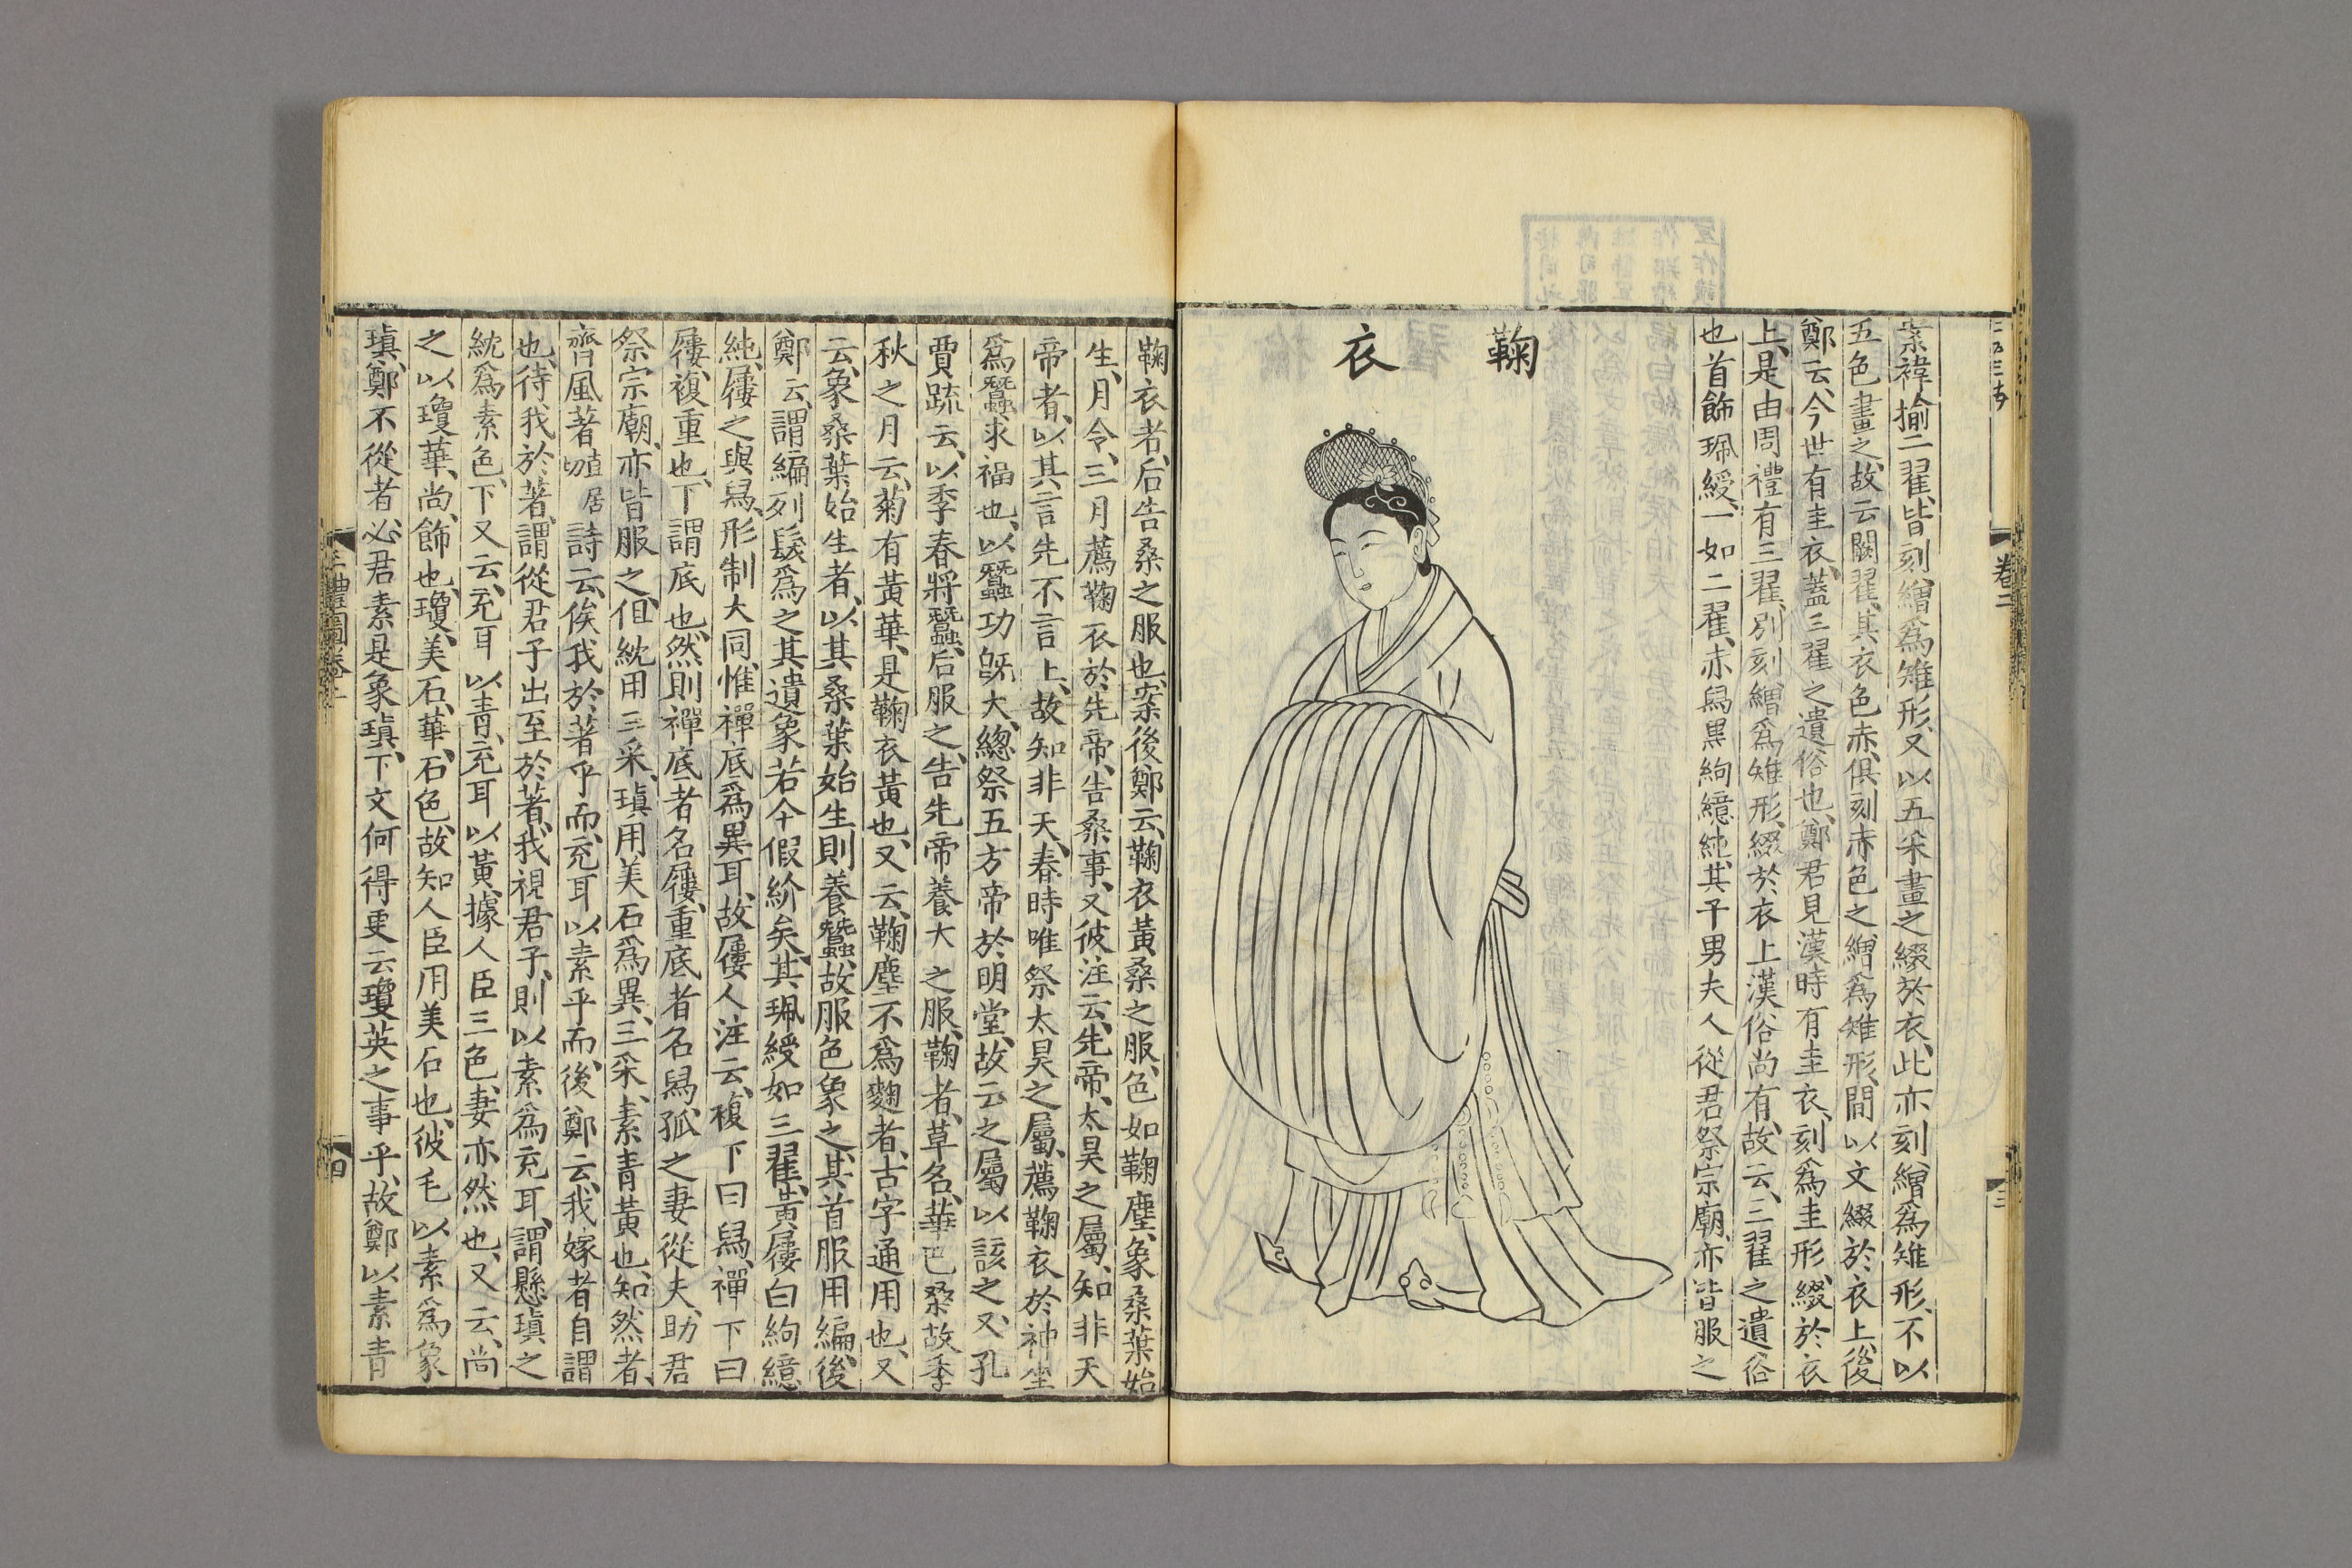 案褘揄二翟、皆刻繒爲雉形、又以五采畫之綴於衣、此亦刻繒爲雉形、不以
五色畫之、故云闕翟、其衣色赤、俱刻赤色之繒爲雉形、間以文綴於衣上、後
鄭云、今世有圭衣、蓋三翟之遺俗也、鄭君見漢時有圭衣、刻爲圭形、綴於衣
上、是由周禮有三翟、別刻繒爲雉形、綴於衣上、漢俗尚有、故云、三翟之遺俗
也、首飾珮綬、一如二翟、赤舄黑絇繶純、其子男夫人從君祭宗廟、亦皆服之
鞠衣
鞠衣者、后告桑之服也、案後鄭云、鞠衣黃桑之服、色如鞠塵、象桑葉始
生、月令、三月薦鞠衣於先帝、告桑事、又彼注云、先帝、太昊之屬、知非天
帝者、以其言先不言上、故知非天、春時唯祭太昊之屬、薦鞠衣於神坐
爲蠶求福也、以蠶功旣大、總祭五方帝於明堂、故云之屬以該之、又孔
賈疏云、以季春將蠶、后服之、告先帝養蠶之服、鞠者、草名、華色桑故季
秋之月云、菊有黃華、是鞠衣黃也、又云、鞠塵不爲麴者、古字通用也、又
云、象桑葉始生者、以其桑葉始生則養蠶、故服色象之、其首服用編、後
鄭云、謂編列髮爲之其遺象若今假紒矣、其珮綬如三翟、黃屨白絇繶
純、屨之與舄、形制大同、惟襌底爲異耳、故屨人注云、複下曰舄、襌下曰
屨、複、重也、下謂底也、然則襌底者名屨、重底者名舄、孤之妻從夫、助君
祭宗廟、亦皆服之、但紞用三采、瑱用美石爲異、三采、素青黃也、知然者、
齊風著 直居切 詩云、俟我於著乎而、充耳以素乎而、後鄭云、我嫁者自謂
也、待我於著、謂從君子出至於著、我視君子、則以素爲充耳、謂懸瑱之
紞爲素色、下又云、充耳以青、充耳以黃、據人臣三色、妻亦然也、又云、尚
之以瓊華、尚、飾也、瓊、美石、華、石色、故知人臣用美石也、彼毛以素爲象
瑱、鄭不從者、必君素是象瑱、下文何得更云瓊英之事乎、故鄭以素青
三禮圖卷二
四
卷二
三